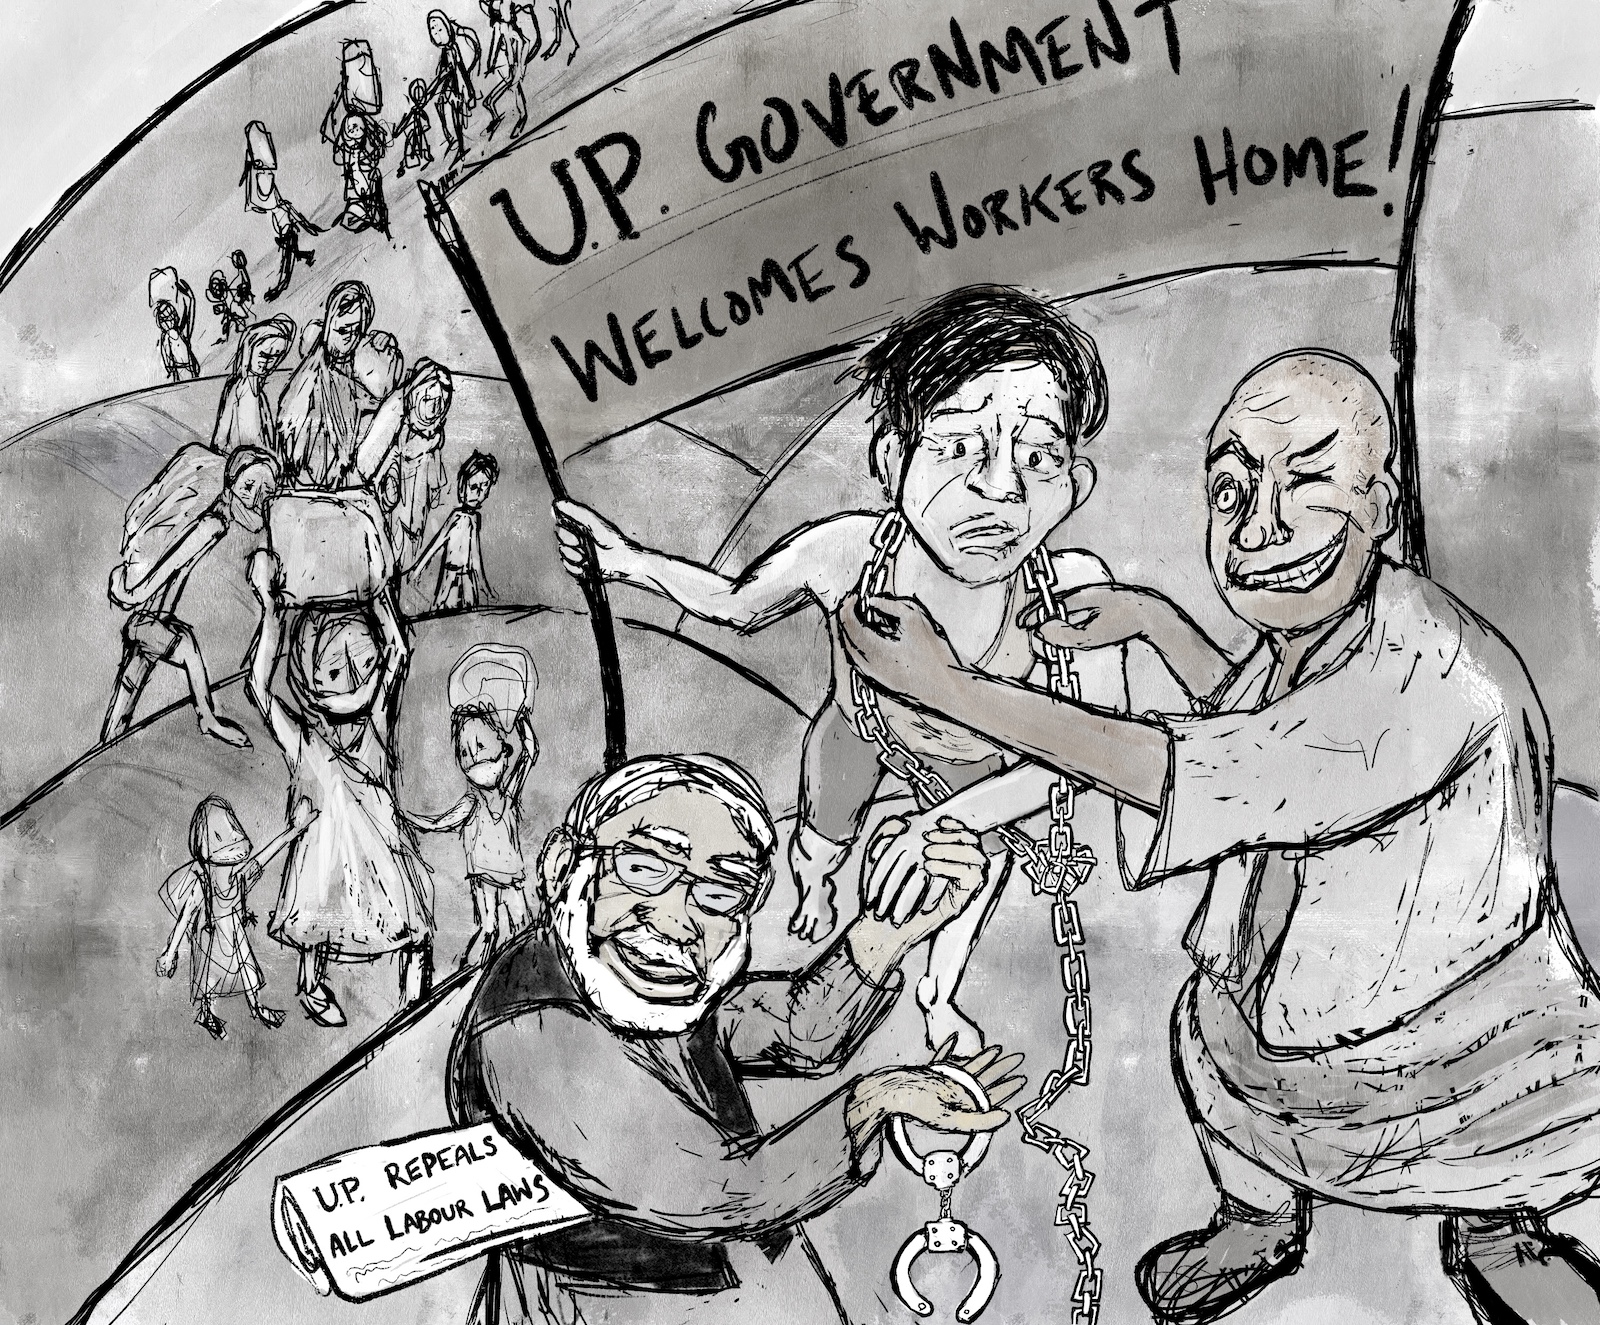 U.P. GOVERNMENT
WELCOMES WORKERS HOME!
U.P. REPEALS
ALL LABOUR LAWS